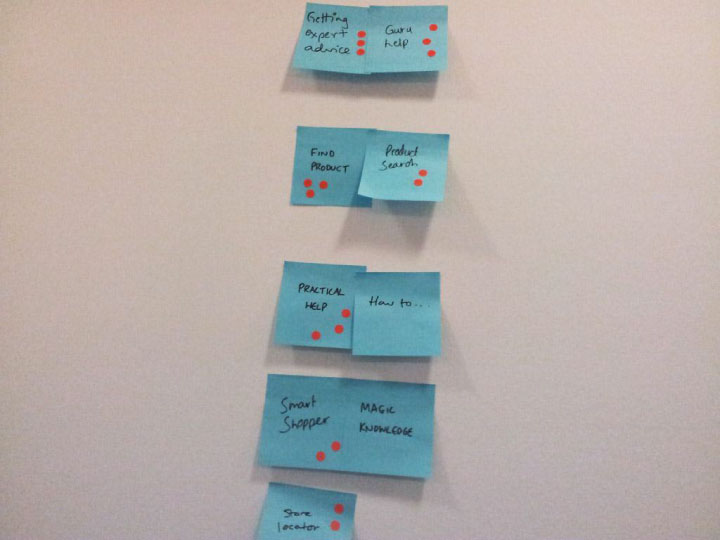 Getting
expert
advice
Guru
help
FIND
PRODUCT
Product
Search
PRACTICAL
HELP
How to...
Smart
Shopper
MAGIC
KNOWLEDGE
Store
locator